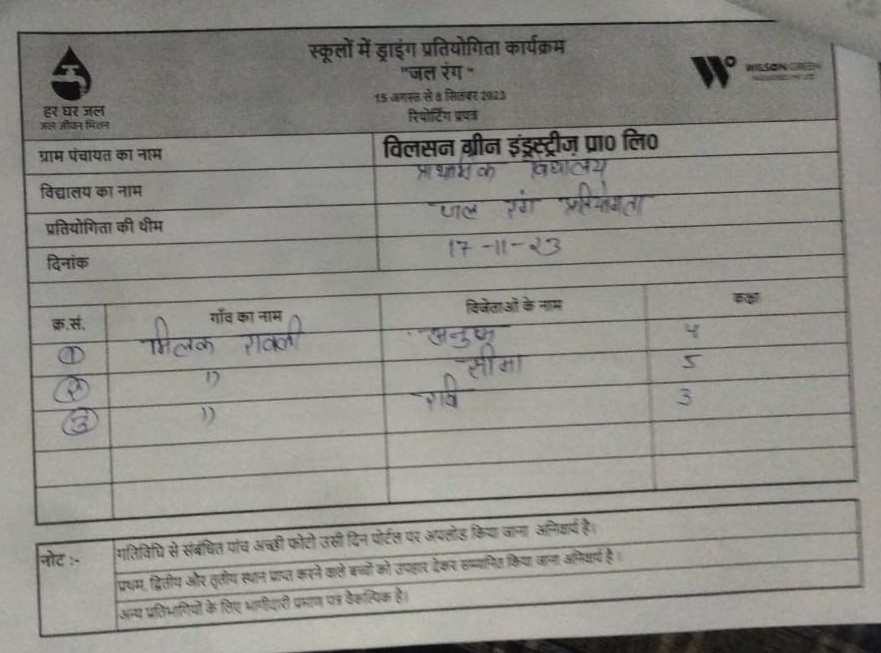 हर घर जल
जल जीवन मिशन
स्कूलों में ड्राइंग प्रतियोगिता कार्यक्रम
"जल रंग"
15 अगस्त से 8 सितंबर 2023
रिपोर्टिंग प्रपत्र
WILSON GREEN
ग्राम पंचायत का नाम विलसन ग्रीन इंड्रस्ट्रीज़ प्रा0 लि0
विद्यालय का नाम प्राथमिक विद्यालय
प्रतियोगिता की थीम जल रंग प्रतियोगता
दिनांक 17-11-23
क्र.सं. गाँव का नाम विजेताओं के नाम कक्षा
1 मिलक रावली 4
2 " सीमा 5
3 " रवि 3
नोट :-
गतिविधि से संबंधित पांच अच्छी फोटो उसी दिन पोर्टल पर अपलोड किया जाना अनिवार्य है।
प्रथम, द्वितीय और तृतीय स्थान प्राप्त करने वाले बच्चों को उपहार देकर सम्मानित किया जाना अनिवार्य है।
अन्य प्रतिभागियों के लिए भागीदारी प्रमाण पत्र वैकल्पिक है।